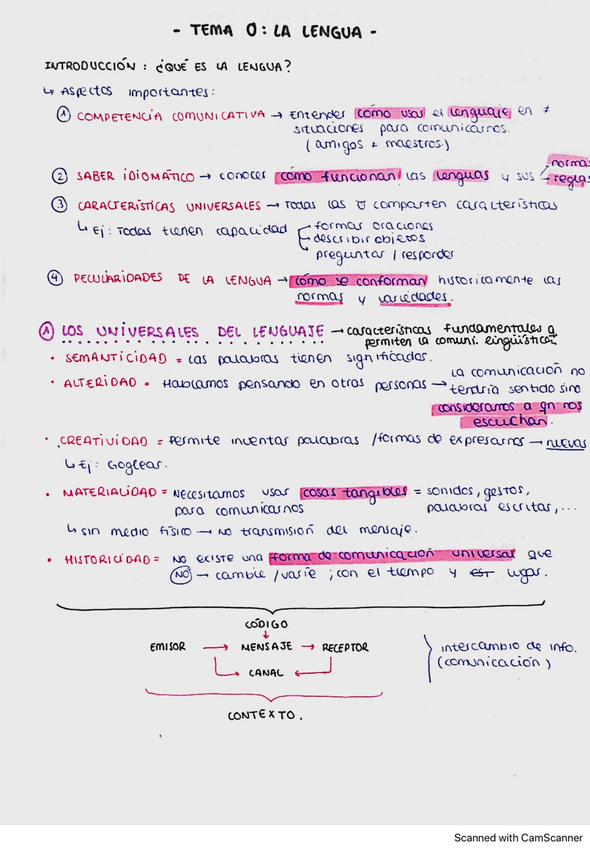 - TEMA 0: LA LENGUA -
INTRODUCCIÓN: ¿QUÉ ES LA LENGUA?
↳ Aspectos importantes:
① COMPETENCIA COMUNICATIVA → Entender cómo usar el lenguaje en ≠
situaciones para comunicarnos.
(amigos ≠ maestros)
② SABER IDIOMÁTICO → conocer cómo funcionan las lenguas y sus normas
reglas
③ CARACTERÍSTICAS UNIVERSALES → Todas las comparten características
↳ Ej: Todas tienen capacidad formar oraciones
describir objetos
preguntar / responder
④ PECULIARIDADES DE LA LENGUA → cómo se conforman históricamente las
normas y variedades.
① LOS UNIVERSALES DEL LENGUAJE → características fundamentales q
permiten la comuni. lingüística
• SEMANTICIDAD = Las palabras tienen significados.
• ALTERIDAD = Hablamos pensando en otras personas → La comunicación no
tendría sentido sino
consideramos a qn nos
escuchan.
• CREATIVIDAD = Permite inventar palabras / formas de expresarnos → nuevas
↳ Ej: Goglear.
• MATERIALIDAD = Necesitamos usar cosas tangibles = sonidos, gestos,
para comunicarnos palabras escritas,...
↳ sin medio físico → No transmisión del mensaje.
• HISTORICIDAD = NO existe una forma de comunicación universal que
NO → cambie / varíe ; con el tiempo y est lugar.
CÓDIGO
EMISOR → MENSAJE → RECEPTOR
CANAL
intercambio de info.
(comunicación)
CONTEXTO.
Scanned with CamScanner